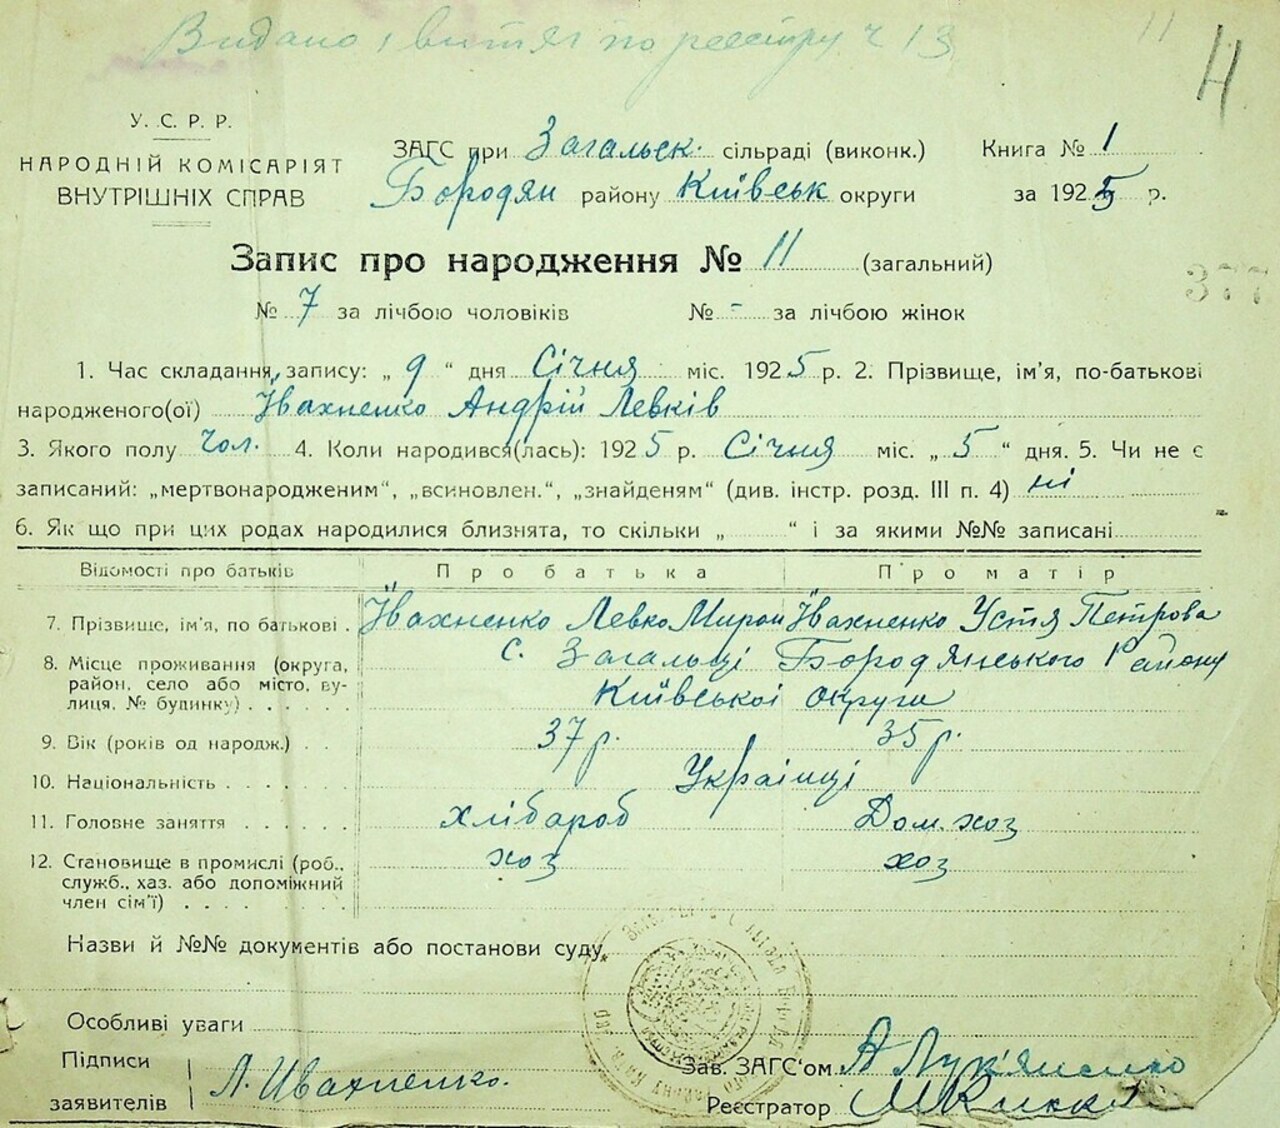 Видано витяг по реєстру ч 13
11
У. С. Р. Р.
НАРОДНІЙ КОМІСАРІЯТ
ВНУТРІШНІХ СПРАВ
ЗАГС при Загальск. сільраді (виконк.) Книга № 1
Бородян району Київськ округи за 1925 р.
Запис про народження № 11 (загальний)
377
№ 7 за лічбою чоловіків № - за лічбою жінок
1. Час складання запису: „ 9 “ дня Січня міс. 1925 р. 2. Прізвище, ім'я, по-батькові
народженого(ої) Івахненко Андрій Левків
3. Якого полу чол. 4. Коли народився(лась): 1925 р. Січня міс. „ 5 “ дня. 5. Чи не є
записаний: „мертвонародженим“, „всиновлен.“, „знайденям“ (див. інстр. розд. III п. 4) ні
6. Як що при цих родах народилися близнята, то скільки „ “ і за якими №№ записані
Відомості про батьків Про батька Про матір
7. Прізвище, ім'я, по батькові . Івахненко Левко Мирон Івахненко Устя Петрова
8. Місце проживання (округа, с. Загальці Бородянського Району
район, село або місто, ву-
лиця, № будинку) . . . . . . Київської округи
9. Вік (років од народж.) . . 37 р. 35 р.
10. Національність . . . . . . . Українці
11. Головне заняття . . . . . . хлібароб Дом. хоз
12. Становище в промислі (роб., хоз хоз
служб., хаз. або допоміжний
член сім'ї) . . . . . . . .
Назви й №№ документів або постанови суду
Особливі уваги
Підписи
заявителів Л. Ивахненко.
Зав. ЗАГС'ом А Лук'яненко
Реєстратор